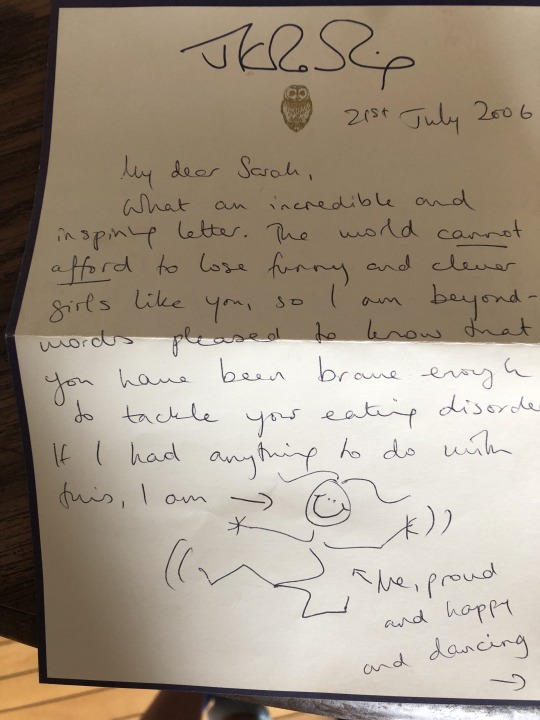 JK Rowling
21st July 2006
My dear Sarah,
What an incredible and
inspiring letter. The world cannot
afford to lose funny and clever
girls like you, so I am beyond-
words pleased to know that
you have been brave enough
to tackle your eating disorde
If I had anything to do with
this, I am →
↖ Me, proud
and happy
and dancing
→